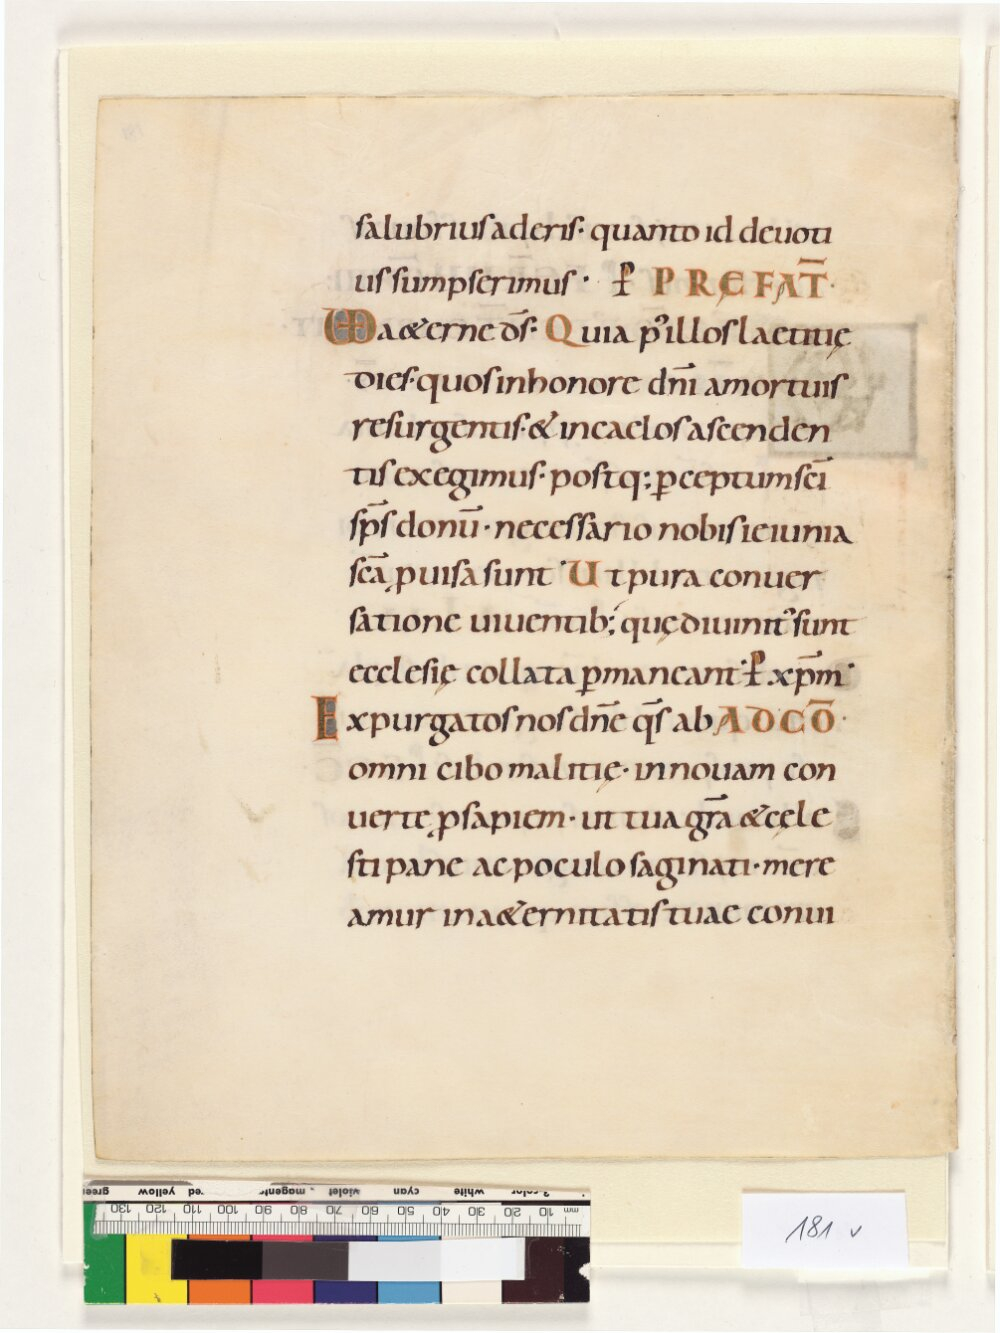 salubrius aderis· quanto id deuoti
us sumpserimus· ꝑ PREFAT̄·
VD a&erne d̄s· Quia p᷒ illos laetitię
dies· quos in honore dn̄i a mortuis
resurgentis· & in caelos ascenden
tis exegimus· postq; ꝑceptum sc̄i
sp̄s donū· necessario nobis ieiunia
sc̄a ꝓuisa sunt· Ut pura conuer
satione uiuentib; quę diuinit᷒ sunt
ecclesię collata ꝑmaneant· ꝑ xp̄m·
Expurgatos nos dn̄e q̄s ab AD CŌ·
omni cibo malitię· in nouam con
uerte ꝓsapiem· ut tua gr̄a & cęle
sti pane ac poculo saginati· mere
amur in a&ernitatis tuae conui
181 v
mm 10 20 30 40 50 60 70 80 90 100 110 120 130
white cyan violet magenta red yellow green